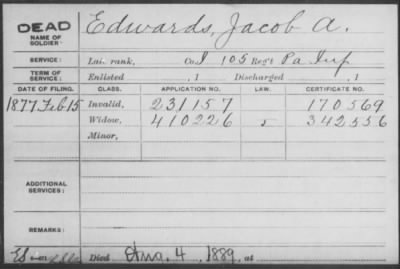 DEAD
NAME OF SOLDIER: Edwards, Jacob A.
SERVICE: Late rank, Co. I 105 Reg't Pa Inf
TERM OF SERVICE: Enlisted , 1 Discharged , 1
DATE OF FILING. CLASS. APPLICATION NO. LAW. CERTIFICATE NO.
1877 Feb 15 Invalid, 231157 170569
Widow, 410226 342556
Minor,
ADDITIONAL SERVICES:
REMARKS:
Died Aug. 4, 1889, at